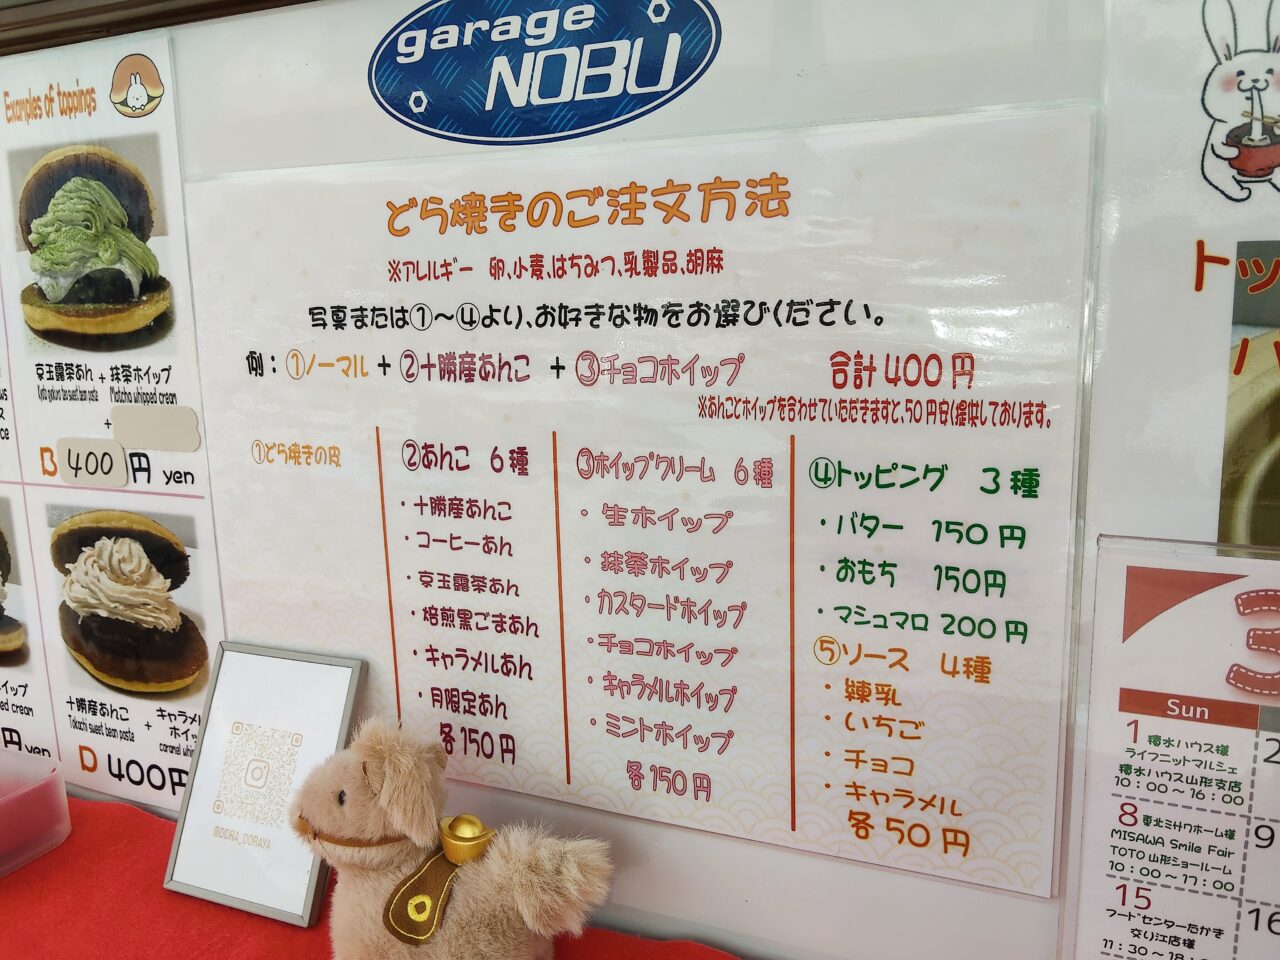 garage
NOBU
Examples of toppings
京玉露茶あん + 抹茶ホイップ
Kyoto gyokuro tea sweet bean paste Matcha whipped cream
+
B 400 円 yen
十勝産あんこ + キャラメル
Tokachi sweet bean paste
D 400円
どら焼きのご注文方法
※アレルギー 卵、小麦、はちみつ、乳製品、胡麻
写真または①〜④より、お好きな物をお選びください。
例：①ノーマル + ②十勝産あんこ + ③チョコホイップ 合計400円
※あんことホイップを合わせていただきますと、50円安く提供しております。
①どら焼きの皮
②あんこ 6種
・十勝産あんこ
・コーヒーあん
・京玉露茶あん
・焙煎黒ごまあん
・キャラメルあん
・月限定あん
各150円
③ホイップクリーム 6種
・生ホイップ
・抹茶ホイップ
・カスタードホイップ
・チョコホイップ
・キャラメルホイップ
・ミントホイップ
各150円
④トッピング 3種
・バター 150円
・おもち 150円
・マシュマロ 200円
⑤ソース 4種
・練乳
・いちご
・チョコ
・キャラメル
各50円
@DORA_DORAYA
トッ
3
Sun
1 積水ハウス様
ライフニットマルシェ
積水ハウス山形支店
10：00〜16：00
2
8 東北ミサワホーム様
MISAWA Smile Fair
TOTO山形ショールーム
10：00〜17：00
9
15
フードセンターたかき
交り江店様
11：30〜18：00
16